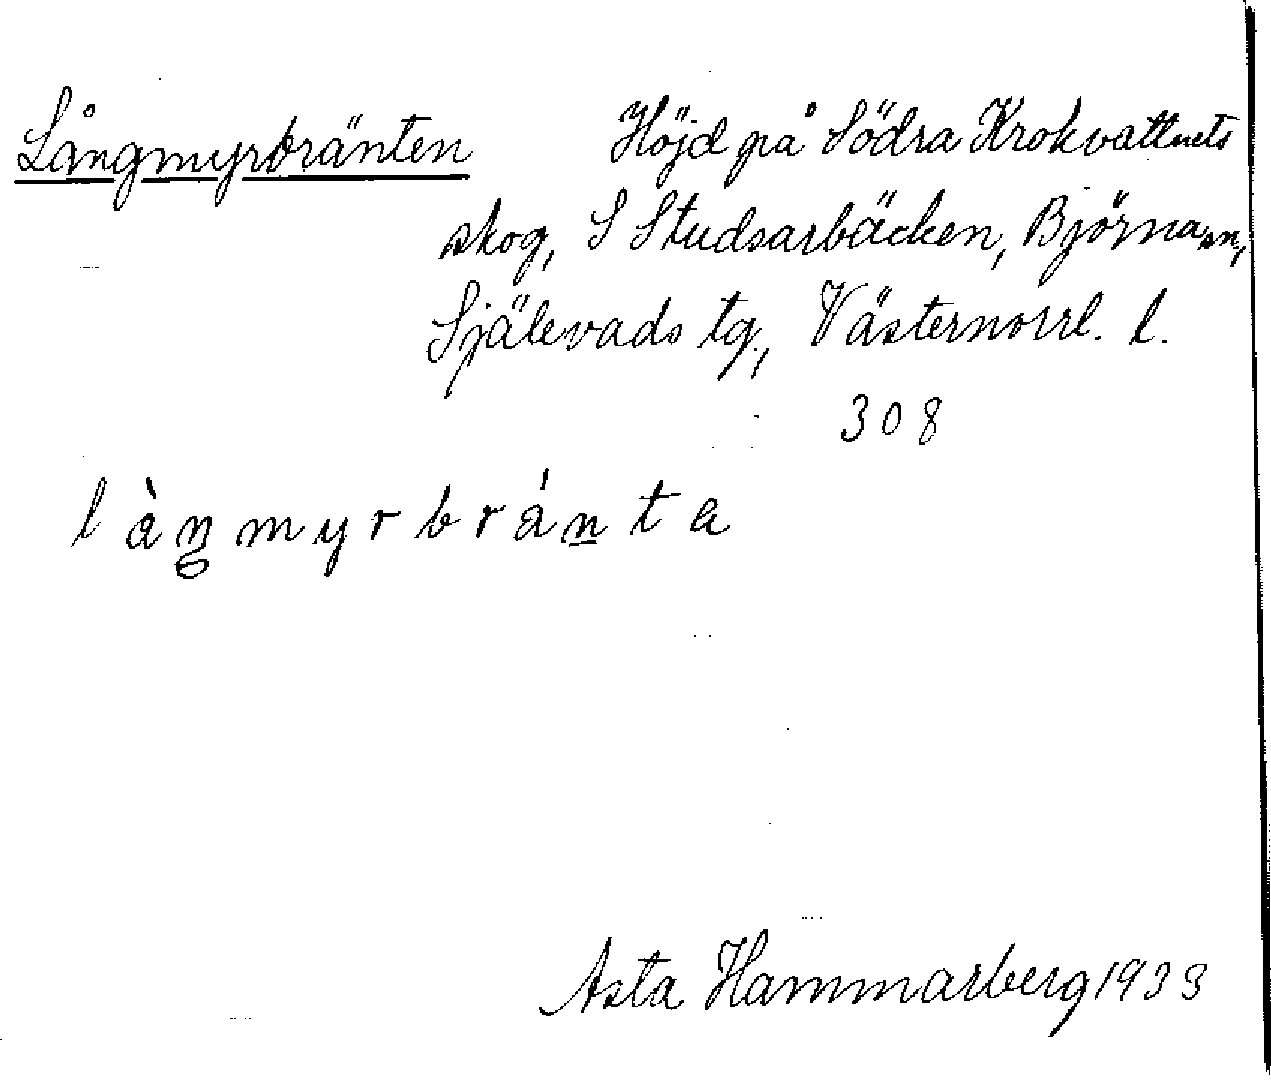 Långmyrbränten Höjd på Södra Krokvattnets
skog, S Studsarbäcken, Björna sn,
Själevads tg, Västernorrl. l.
308
làŋmyrbránta
Asta Hammarberg 1933